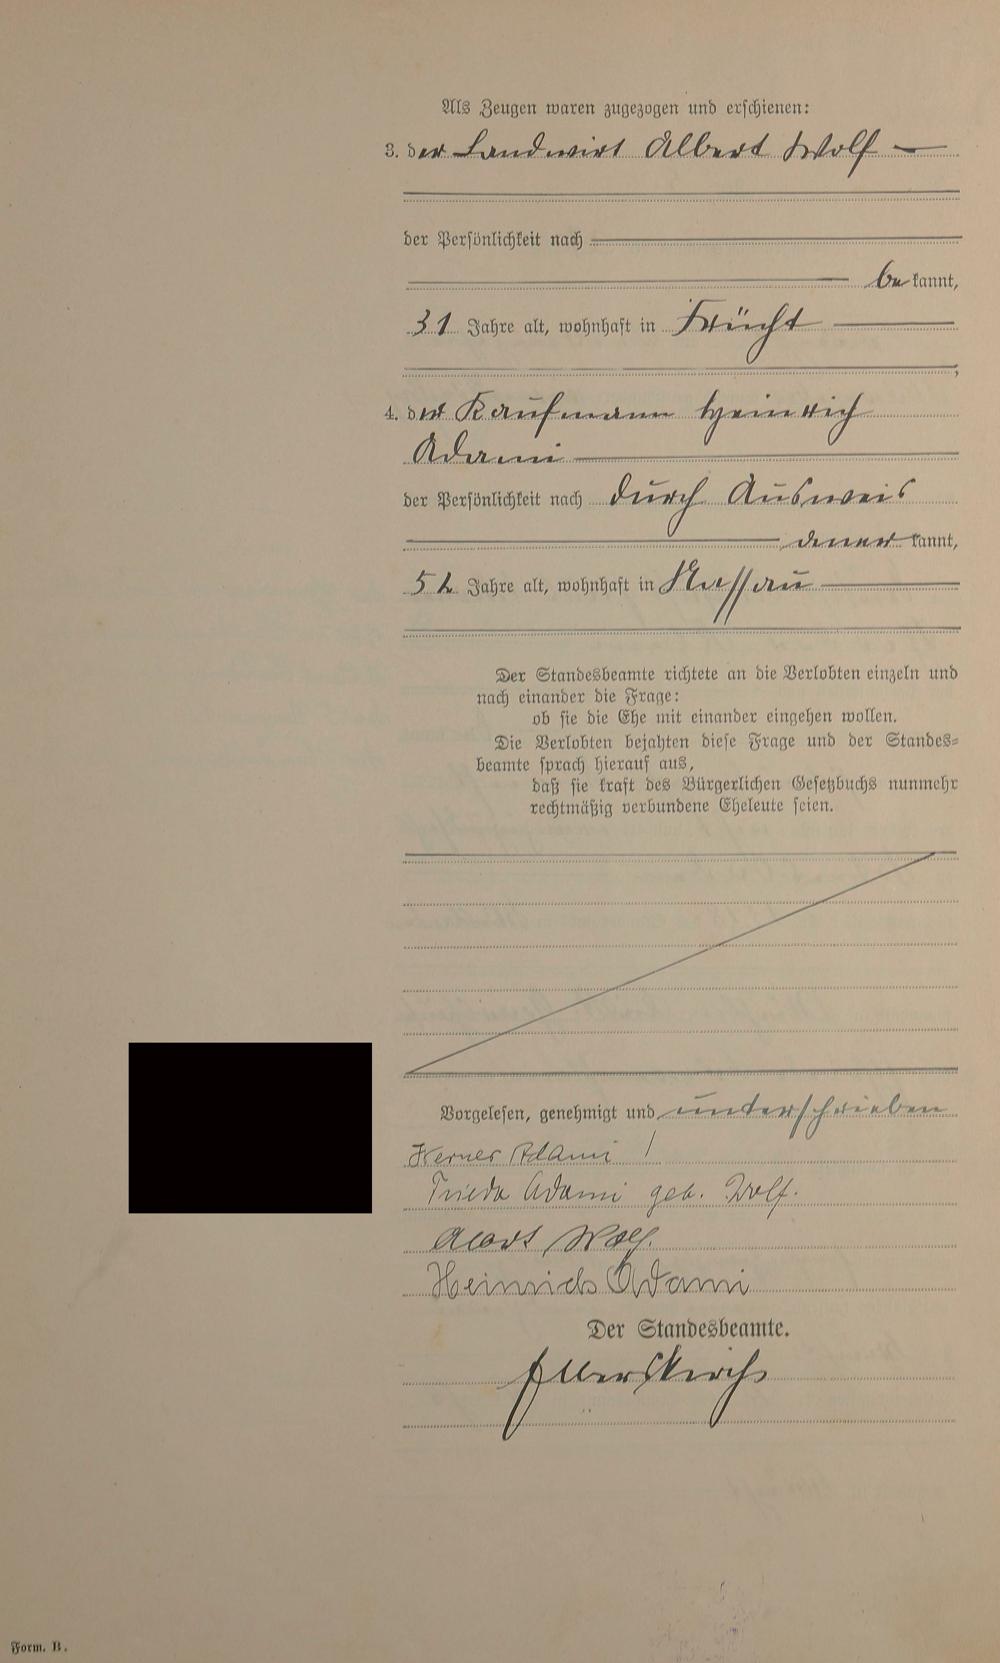 Als Zeugen waren zugezogen und erschienen:
3. der Landwirt Albert Wolf
der Persönlichkeit nach
be kannt,
31 Jahre alt, wohnhaft in Frücht
;
4. der Kaufmann Heinrich
Adami
der Persönlichkeit nach durch Ausweis
kannt,
52 Jahre alt, wohnhaft in Nassau
Der Standesbeamte richtete an die Verlobten einzeln und
nach einander die Frage:
ob sie die Ehe mit einander eingehen wollen.
Die Verlobten bejahten diese Frage und der Standes=
beamte sprach hierauf aus,
daß sie kraft des Bürgerlichen Gesetzbuchs nunmehr
rechtmäßig verbundene Eheleute seien.
Vorgelesen, genehmigt und unterschrieben
Werner Adami
Frieda Adami geb. Wolf.
Albert Wolf.
Heinrich Adami
Der Standesbeamte.
Form. B.